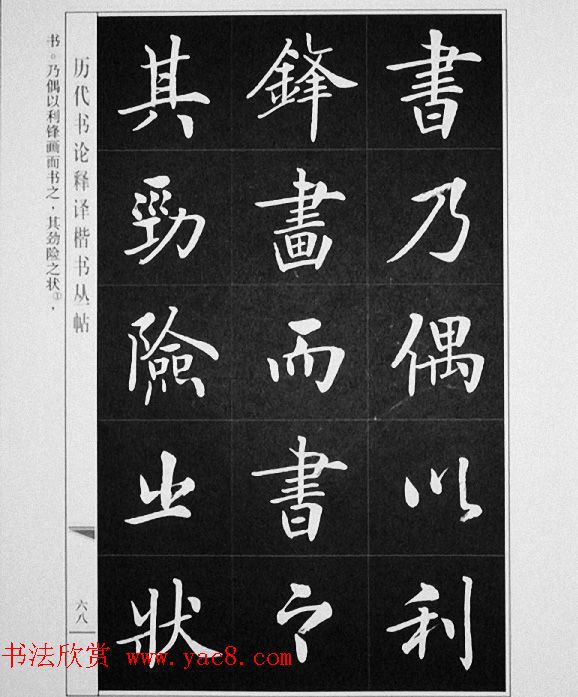 書乃偶以利
鋒畫而書之
其勁險之狀
历代书论释译楷书丛帖
六八
书。乃偶以利锋画而书之，其劲险之状①，
书法欣赏 www.yac8.com